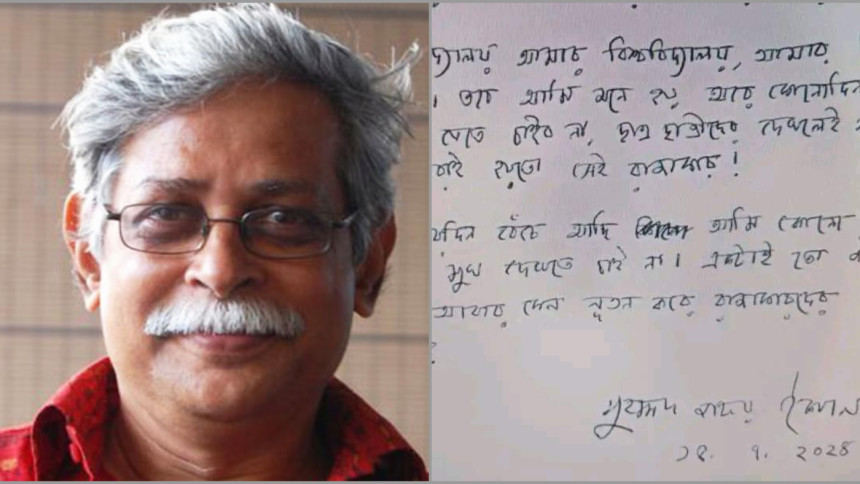 দ্যালয় আমার বিশ্ববিদ্যালয়, আমার
। তবে আমি মনে হয় আর কোনোদিন
যেতে চাইব না, ছাত্র ছাত্রীদের দেখলেই
রাই হয়তো সেই রাজাকার!
দিন বেঁচে আছি আমি কোনো
মুখ দেখতে চাই না। একটাই তো
আবার কেন নূতন করে রাজাকারদের
মুহম্মদ জাফর ইকবাল
৭. ২০২৪